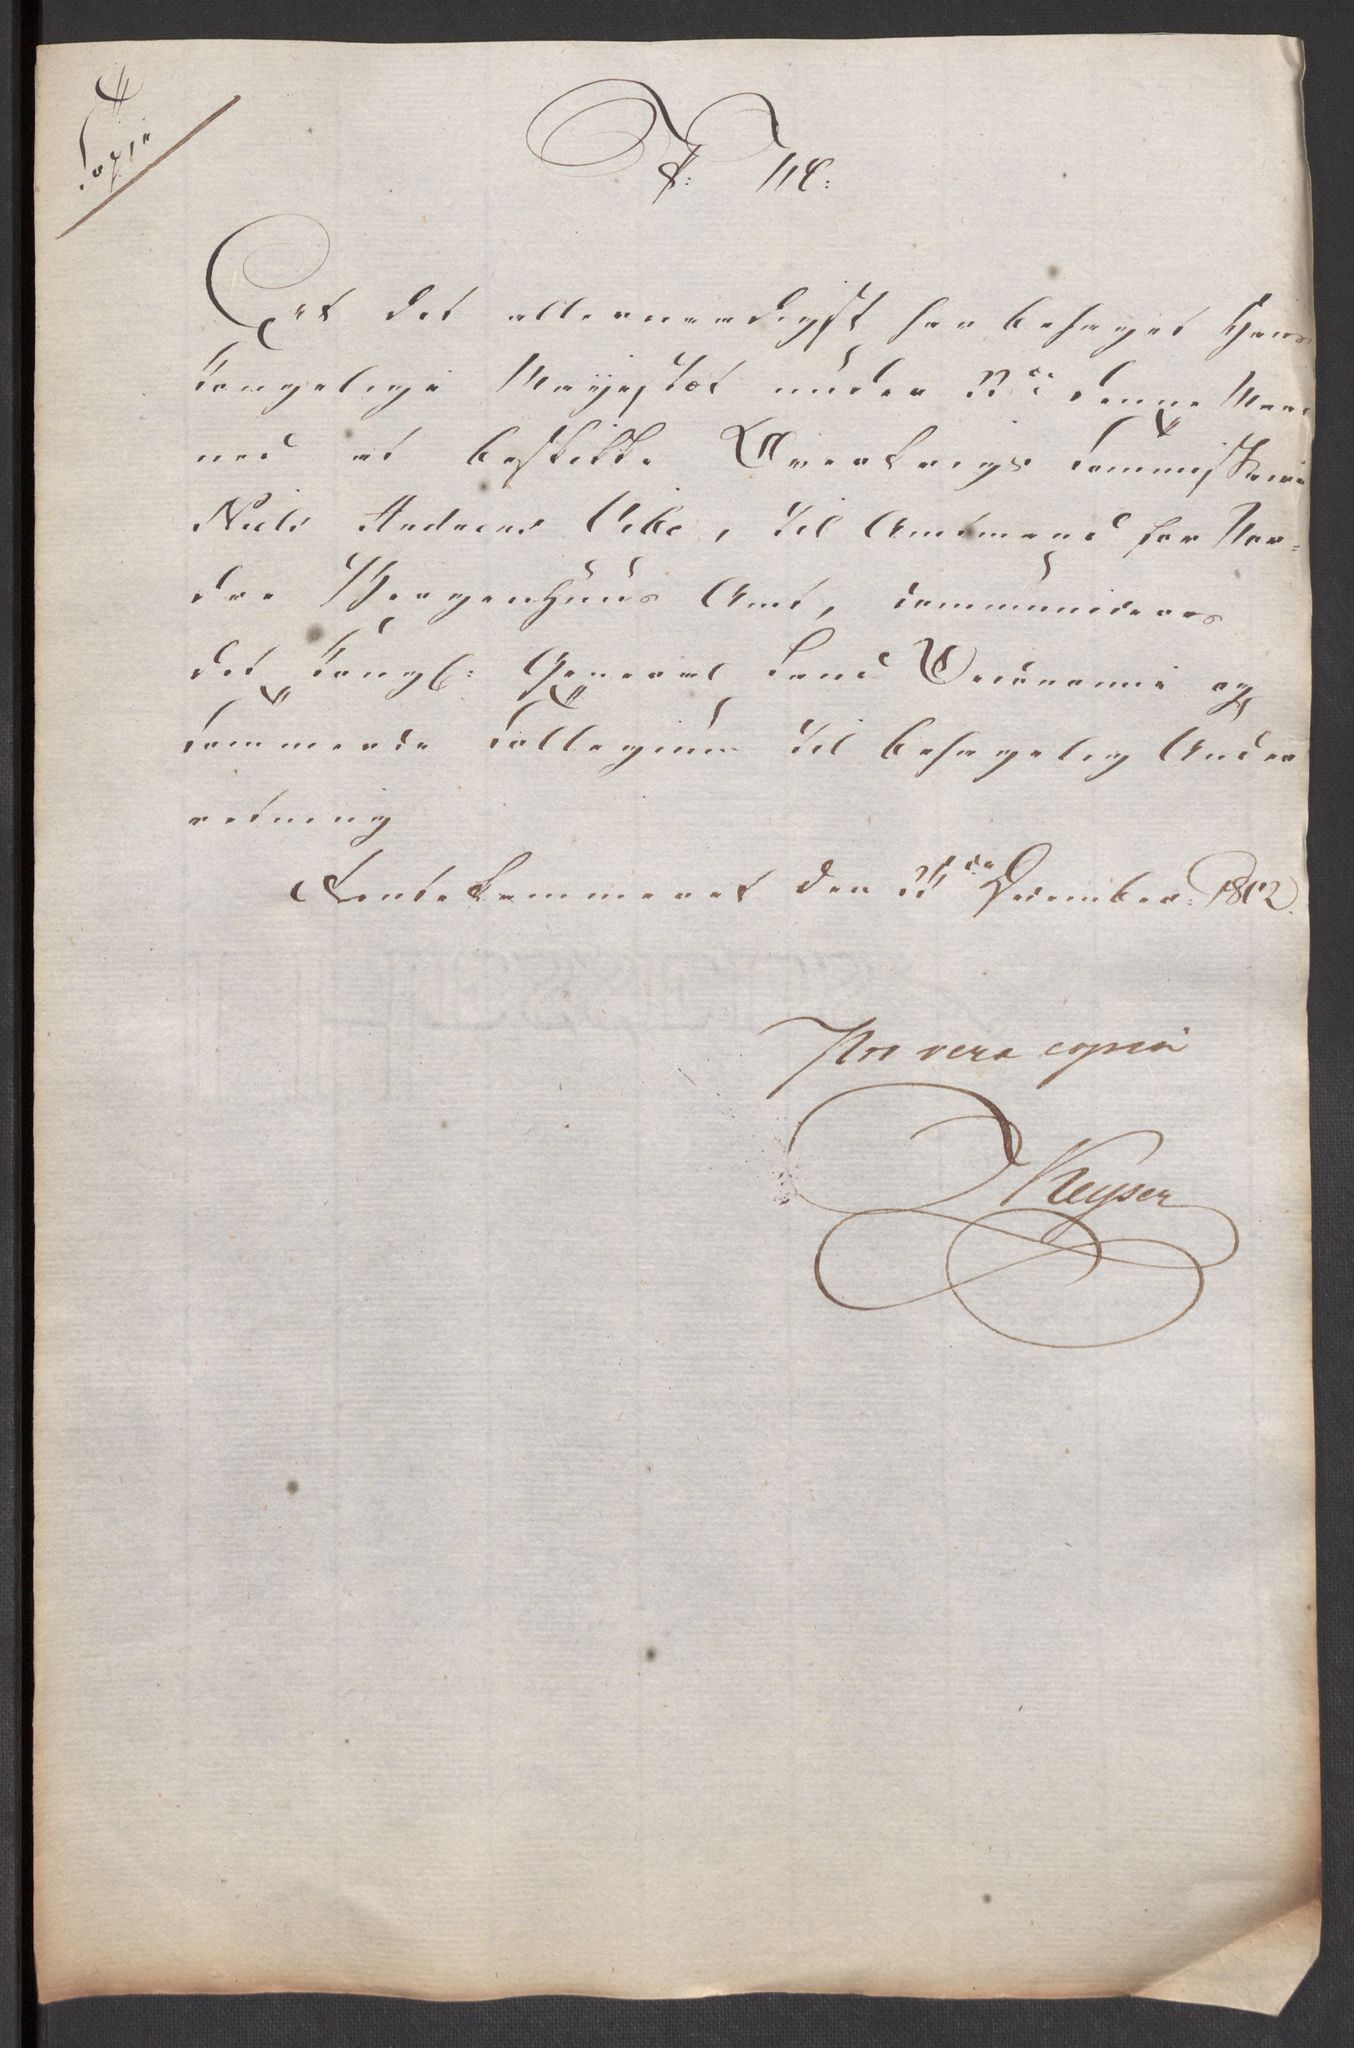 Copia
P: M:
At det allernaadigst har behaget Hans
Kongelige Mayestæt under denne Maa
ned at beskikke Overkrigs Commissaire
Niels Andreas Vibe, til Amtmand for Nor-
dre Bergenhuus Amt, communiceres
det Kongl: General Land Oeconomie og
Commerce Collegium til behagelig Under
retning
Rentekammeret den December 1802.
Pro vera copia
Keyser